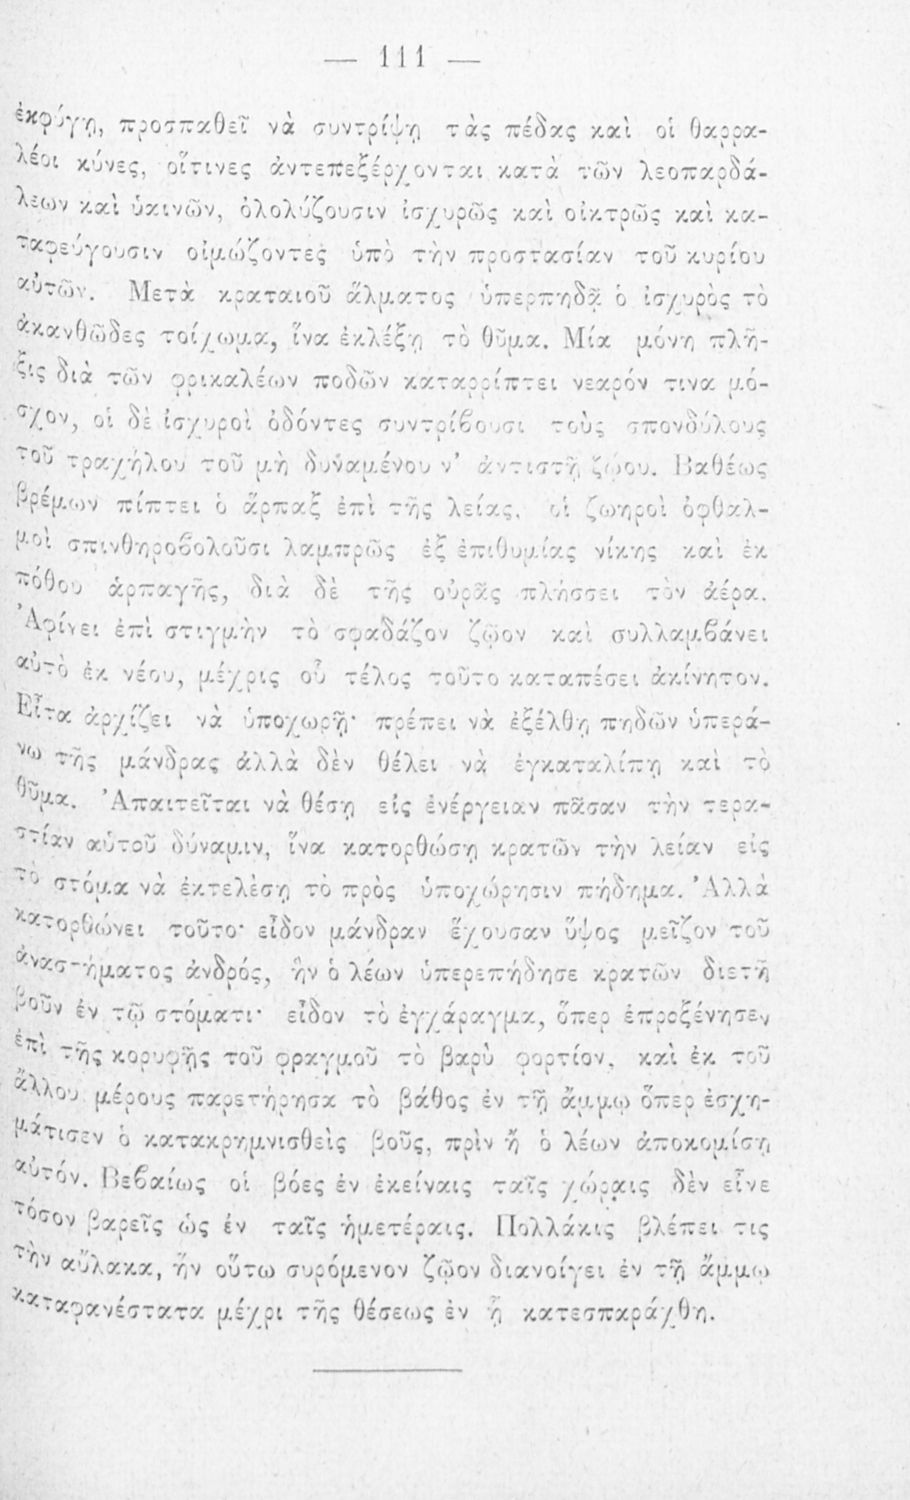 — 111 —
ἐκφύγῃ, προσπαθεῖ νὰ συντρίψῃ τὰς πέδας καὶ οἱ θαρρα-
λέοι κύνες, οἵτινες ἀντεπεξέρχονται κατὰ τῶν λεοπαρδά-
λεων καὶ ὑαινῶν, ὀλολύζουσιν ἰσχυρῶς καὶ οἰκτρῶς καὶ κα-
ταφεύγουσιν οἰμώζοντες ὑπὸ τὴν προστασίαν τοῦ κυρίου
αὐτῶν. Μετὰ κραταιοῦ ἅλματος ὑπερπηδᾷ ὁ ἰσχυρὸς τὸ
ἀκανθῶδες τοίχωμα, ἵνα ἐκλέξῃ τὸ θῦμα. Μία μόνη πλῆ-
ξις διὰ τῶν φρικαλέων ποδῶν καταρρίπτει νεαρόν τινα μό-
σχον, οἱ δὲ ἰσχυροὶ ὀδόντες συντρίβουσι τοὺς σπονδύλους
τοῦ τραχήλου τοῦ μὴ δυναμένου ν' ἀντιστῇ ζῴου. Βαθέως
βρέμων πίπτει ὁ ἅρπαξ ἐπὶ τῆς λείας, οἱ ζωηροὶ ὀφθαλ-
μοὶ σπινθηροβολοῦσι λαμπρῶς ἐξ ἐπιθυμίας νίκης καὶ ἐκ
πόθου ἁρπαγῆς, διὰ δὲ τῆς οὐρᾶς πλήσσει τὸν ἀέρα.
Ἀφίνει ἐπὶ στιγμὴν τὸ σφαδάζον ζῷον καὶ συλλαμβάνει
αὐτὸ ἐκ νέου, μέχρις οὗ τέλος τοῦτο καταπέσει ἀκίνητον.
Εἶτα ἀρχίζει νὰ ὑποχωρῇ· πρέπει νὰ ἐξέλθῃ πηδῶν ὑπερά-
νω τῆς μάνδρας ἀλλὰ δὲν θέλει νὰ ἐγκαταλίπῃ καὶ τὸ
θῦμα. Ἀπαιτεῖται νὰ θέσῃ εἰς ἐνέργειαν πᾶσαν τὴν τερα-
στίαν αὑτοῦ δύναμιν, ἵνα κατορθώσῃ κρατῶν τὴν λείαν εἰς
τὸ στόμα νὰ ἐκτελὲσῃ τὸ πρὸς ὑποχώρησιν πήδημα. Ἀλλὰ
κατορθώνει τοῦτο· εἶδον μάνδραν ἔχουσαν ὕψος μεῖζον τοῦ
ἀναστήματος ἀνδρός, ἣν ὁ λέων ὑπερεπήδησε κρατῶν διετῆ
βοῦν ἐν τῷ στόματι· εἶδον τὸ ἐγχάραγμα, ὅπερ ἐπροξένησεν
ἐπὶ τῆς κορυφῆς τοῦ φραγμοῦ τὸ βαρὺ φορτίον, καὶ ἐκ τοῦ
ἄλλου μέρους παρετήρησα τὸ βάθος ἐν τῇ ἄμμῳ ὅπερ ἐσχη-
μάτισεν ὁ κατακρημνισθεὶς βοῦς, πρὶν ἢ ὁ λέων ἀποκομίσῃ
αὐτόν. Βεβαίως οἱ βόες ἐν ἐκείναις ταῖς χώραις δὲν εἶνε
τόσον βαρεῖς ὡς ἐν ταῖς ἡμετέραις. Πολλάκις βλέπει τις
τὴν αὔλακα, ἣν οὕτω συρόμενον ζῷον διανοίγει ἐν τῇ ἄμμῳ
καταφανέστατα μέχρι τῆς θέσεως ἐν ᾗ κατεσπαράχθη.